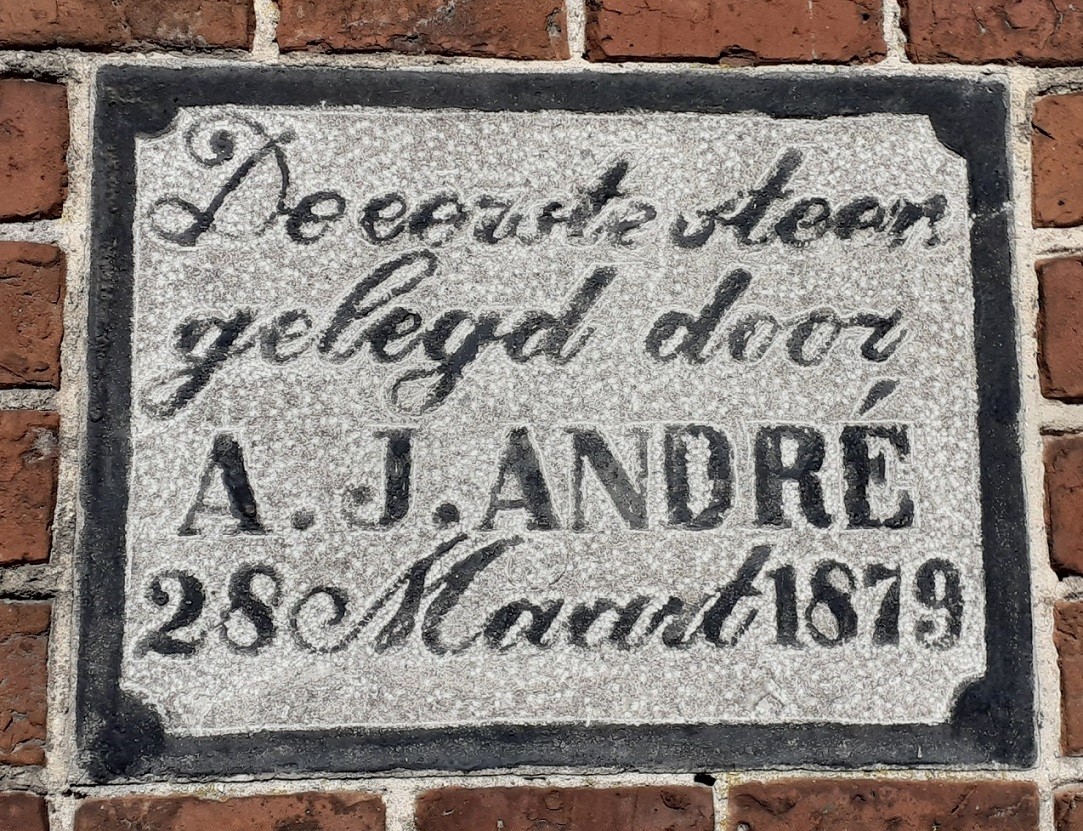 De eerste steen
gelegd door
A. J. ANDRÉ
28 Maart 1879